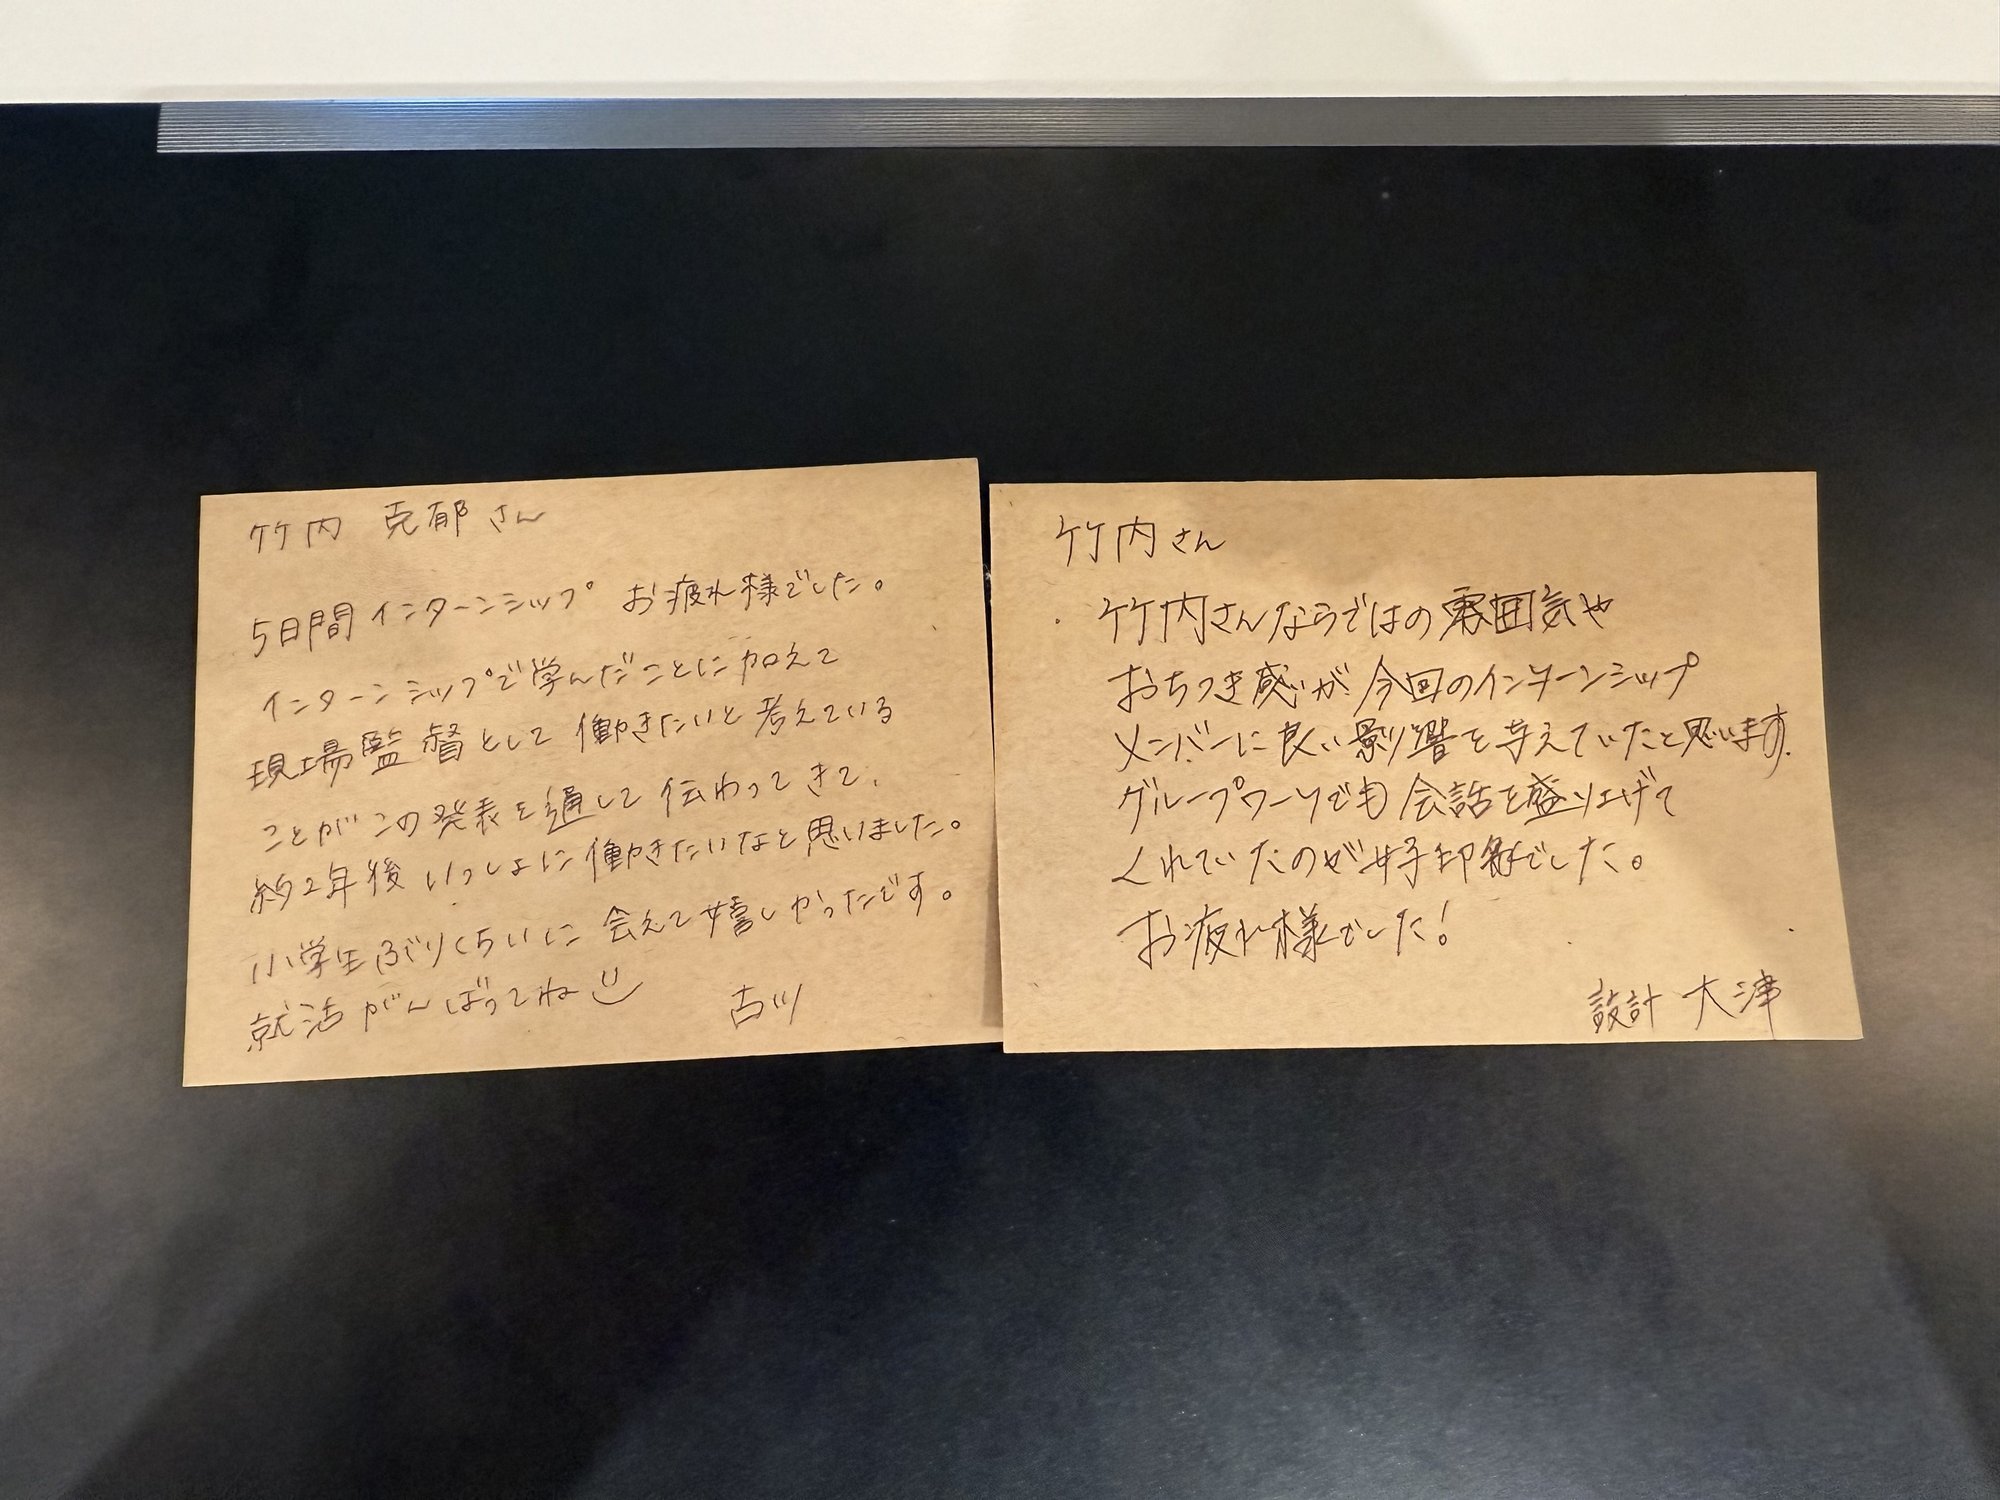 竹内 克郁さん
5日間インターンシップ お疲れ様でした。
インターンシップで学んだことに加えて
現場監督として働きたいと考えている
ことがこの発表を通して伝わってきて、
約2年後いっしょに働きたいなと思いました。
小学生ぶりくらいに会えて嬉しかったです。
就活がんばってね
古川
竹内さん
竹内さんならではの雰囲気や
おちつき感が今回のインターンシップ
メンバーに良い影響を与えていたと思います。
グループワークでも会話を盛り上げて
くれていたのが好印象でした。
お疲れ様でした!
設計 大津